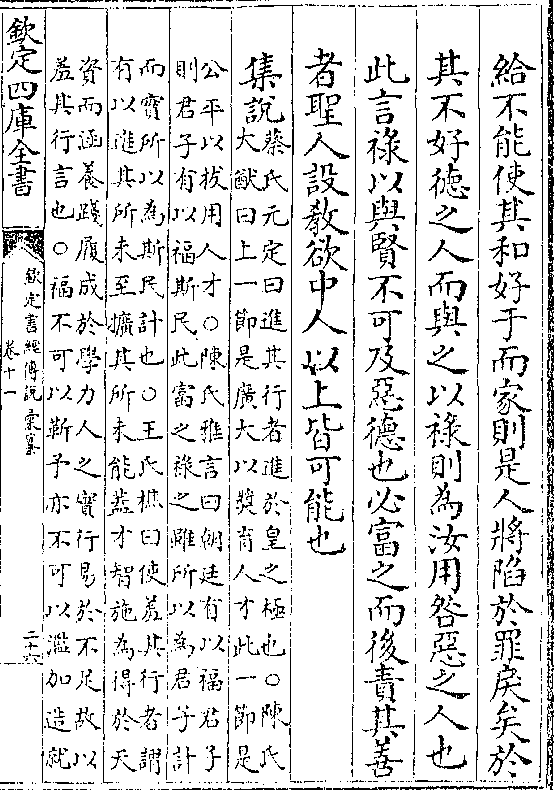 給不能使其和好于而家則是人將陷於罪戾矣於
其不好德之人而與之以祿則為汝用咎惡之人也
此言祿以與賢不可及惡德也必富之而後責其善
者聖人設教欲中人以上皆可能也
集說
蔡氏元定曰進其行者進於皇之極也○陳氏
大猷曰上一節是廣大以奬育人才此一節是
公平以拔用人才○陳氏雅言曰朝廷有以福君子
則君子有以福斯民此富之祿之雖所以為君子計
而實所以為斯民計也○王氏樵曰使羞其行者謂
有以進其所未至擴其所未能蓋才智施為得於天
資而涵養踐履成於學力人之實行易於不足故以
羞其行言也○福不可以靳予亦不可以濫加造就
欽定四庫全書
欽定書經傳說彙纂
卷十一
二十六